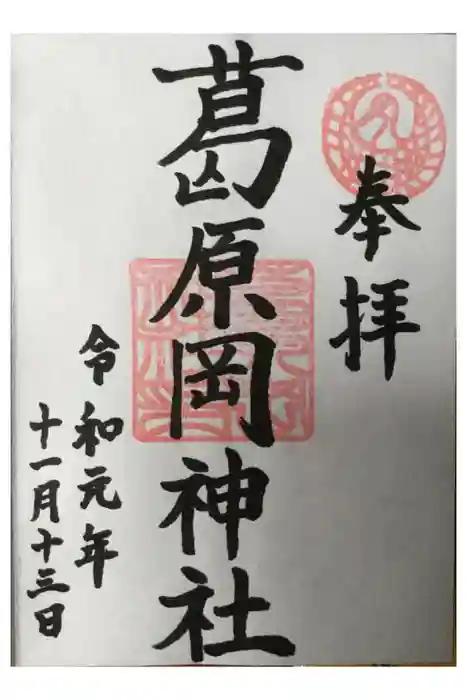 奉拝
葛原岡神社
令和元年
十一月十三日